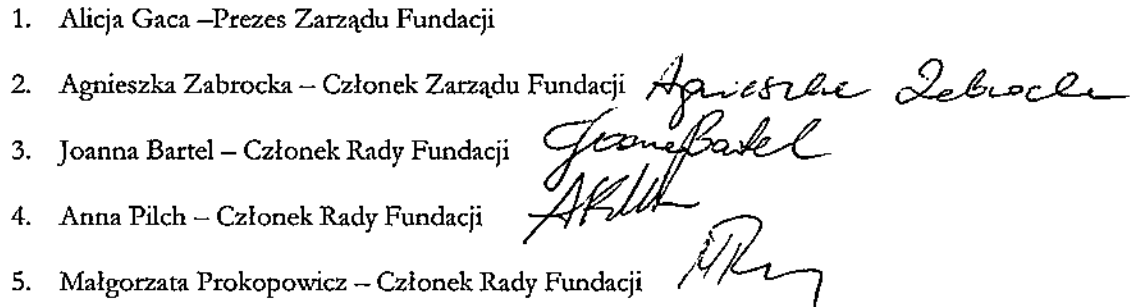 1. Alicja Gaca –Prezes Zarządu Fundacji
2. Agnieszka Zabrocka – Członek Zarządu Fundacji Agnieszka Zabrocka
3. Joanna Bartel – Członek Rady Fundacji Joanna Bartel
4. Anna Pilch – Członek Rady Fundacji
5. Małgorzata Prokopowicz – Członek Rady Fundacji